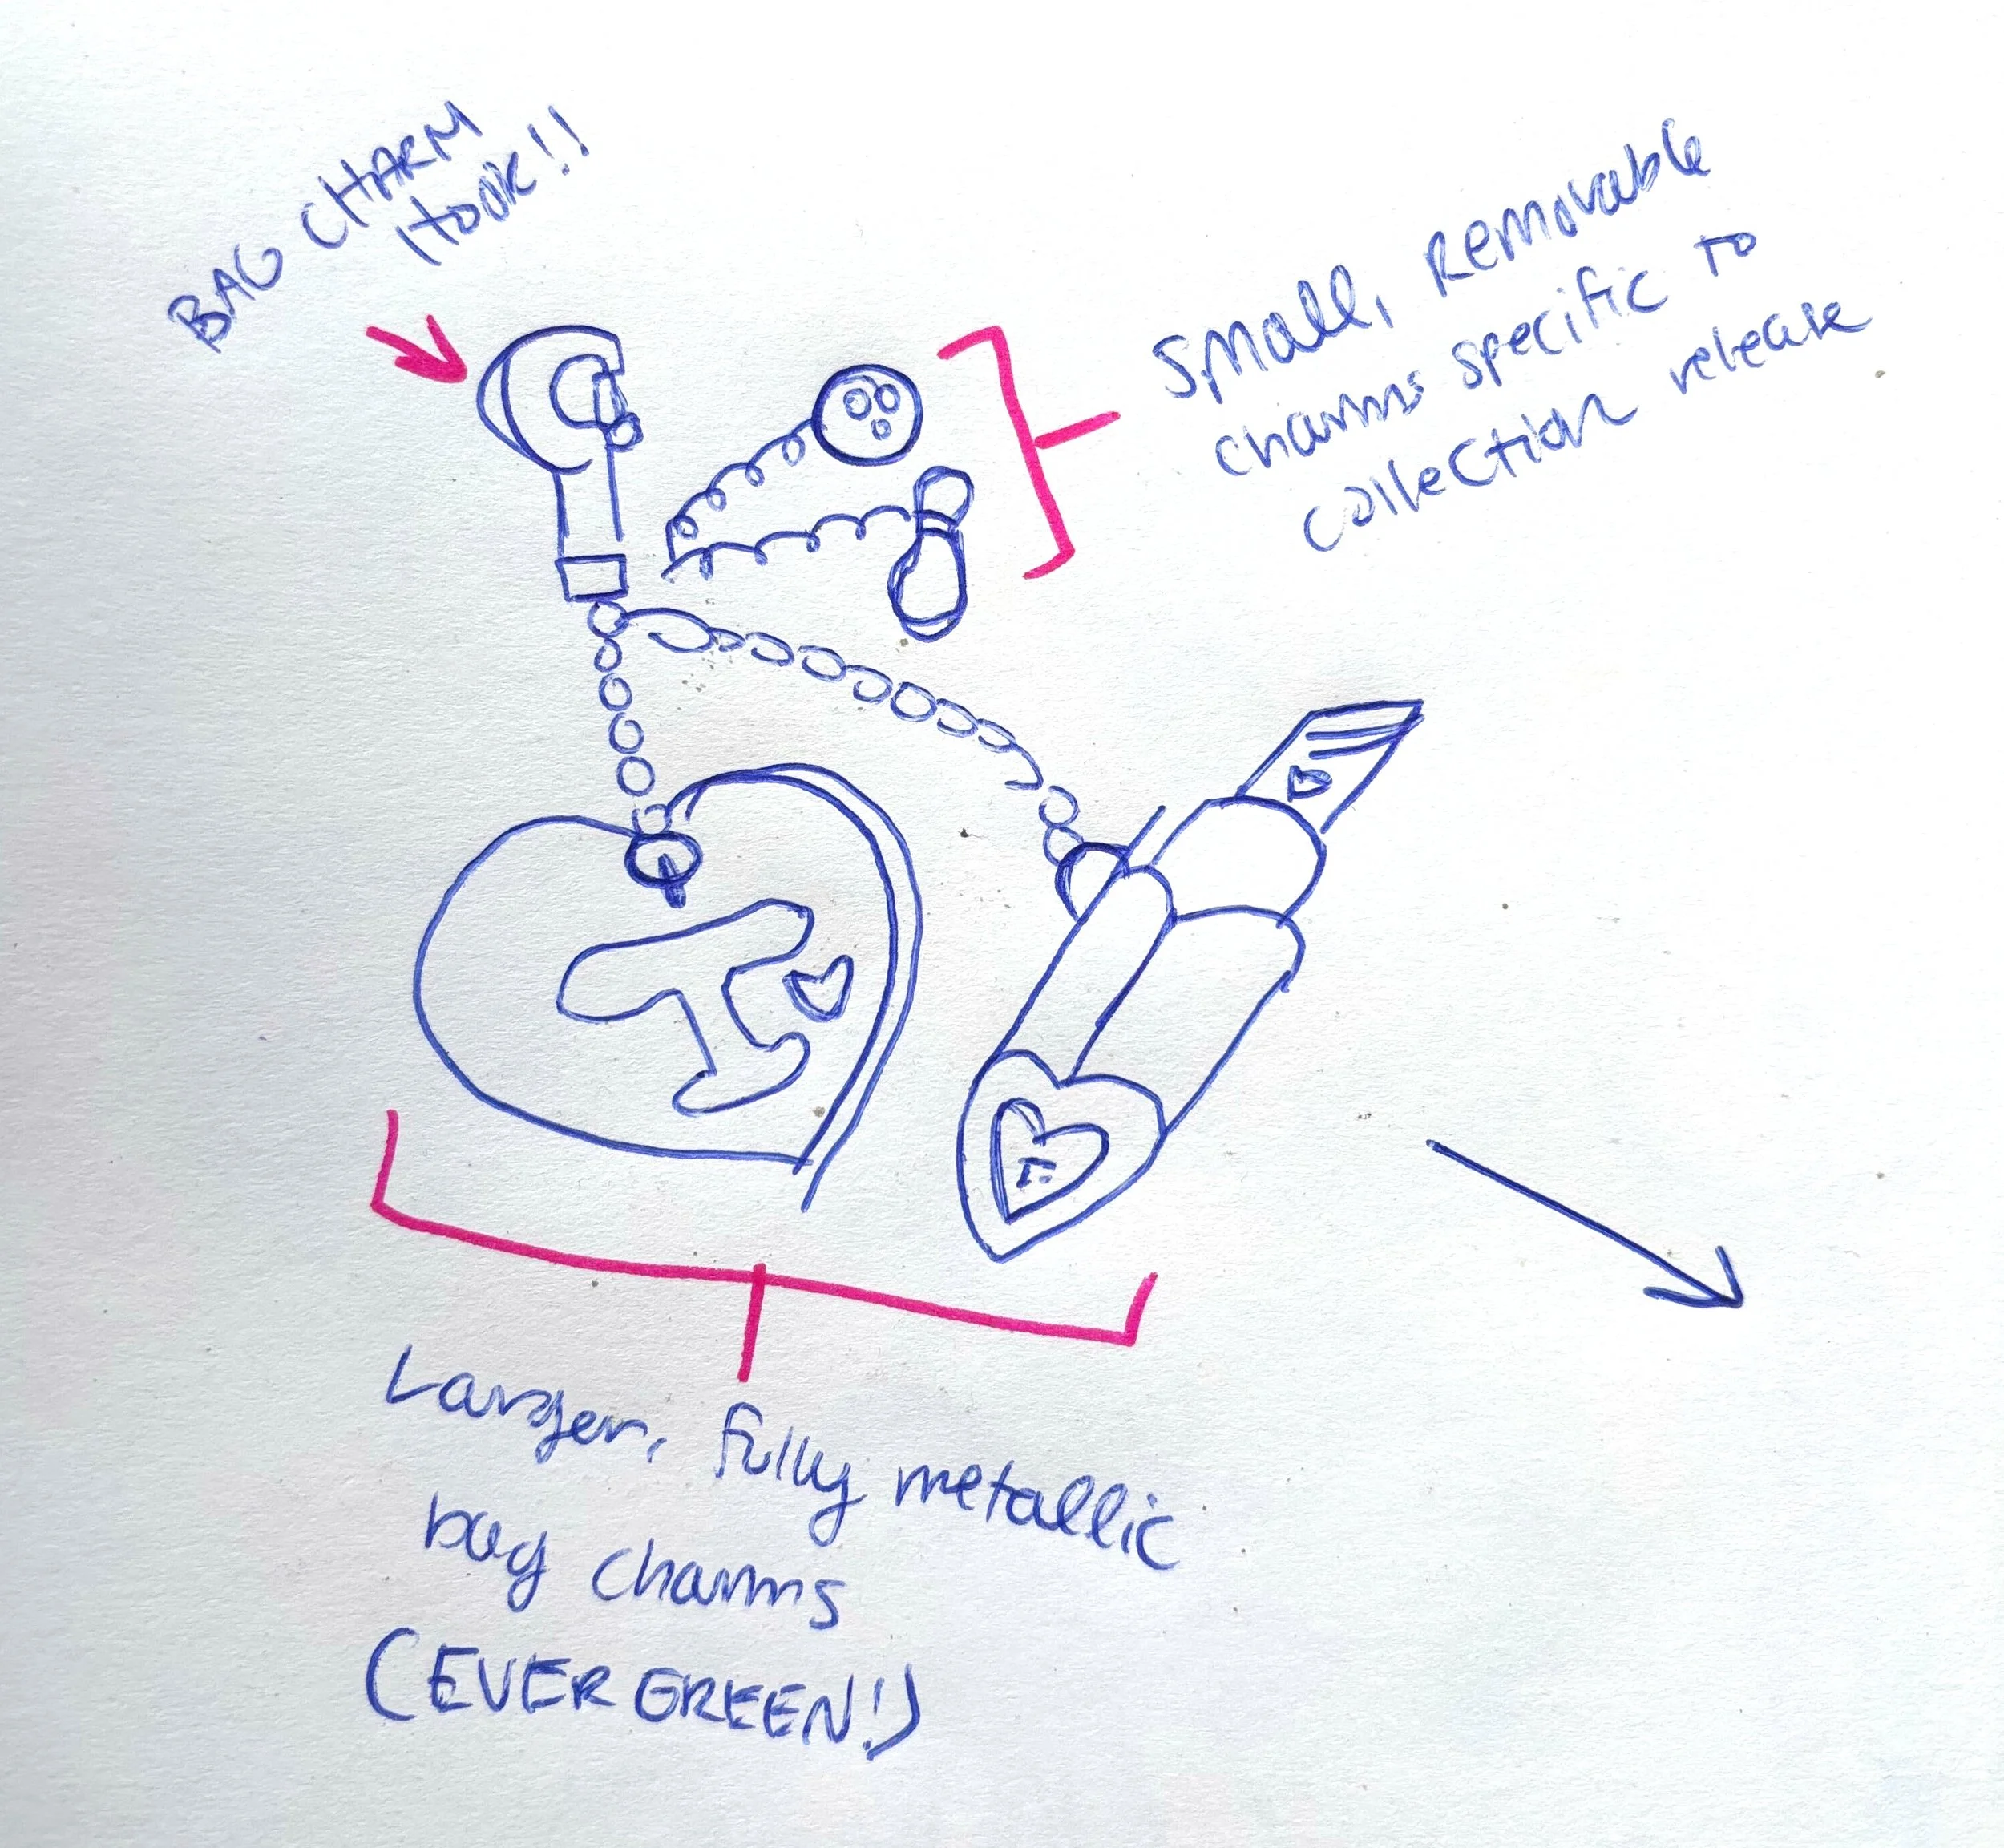 BAG CHARM
HOOK!!
Small, Removable
charms specific to
collection release
Larger, fully metallic
bag charms
(EVERGREEN!)